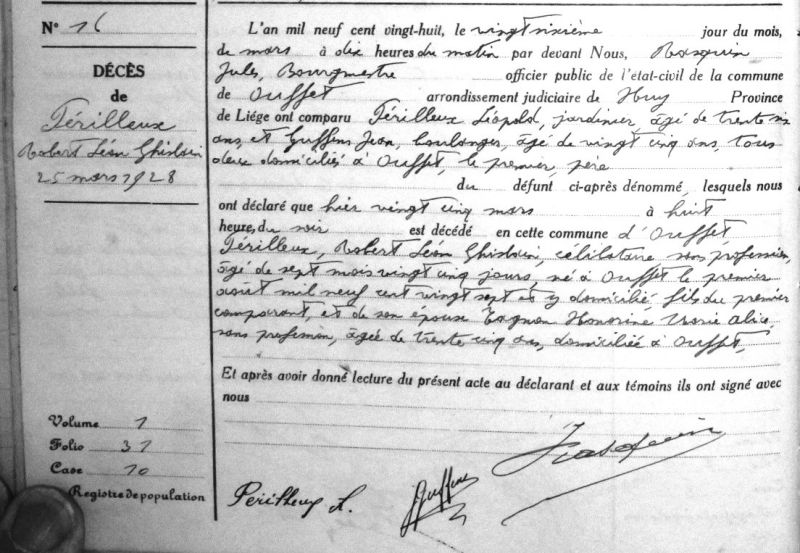 N° 16
DÉCÈS
de
Térilleux
Robert Léon Ghislain
25 mars 1928
L'an mil neuf cent vingt-huit, le vingt sixième jour du mois,
de mars à dix heures du matin par devant Nous, Rasquin
Jules, Bourgmestre officier public de l'état-civil de la commune
de Ouffet arrondissement judiciaire de Huy Province
de Liége ont comparu Térilleux Léopold, jardinier, âgé de trente six
ans, et Guffens Jean, boulanger, âgé de vingt cinq ans, tous
deux domiciliés à Ouffet, le premier, père
du défunt ci-après dénommé, lesquels nous
ont déclaré que hier vingt cinq mars à huit
heure, du soir est décédé en cette commune d'Ouffet,
Térilleux, Robert Léon Ghislain, célibataire sans profession,
âgé de sept mois vingt cinq jours, né à Ouffet le premier
août mil neuf cent vingt sept et y domicilié, fils du premier
comparant, et de son épouse Honorine Marie Alice,
sans profession, âgée de trente cinq ans, domiciliée à Ouffet,
Et après avoir donné lecture du présent acte au déclarant et aux témoins ils ont signé avec
nous
Volume 1
Folio 31
Case 10
Registre de population
Perilleux L.
Guffens
Rasquin